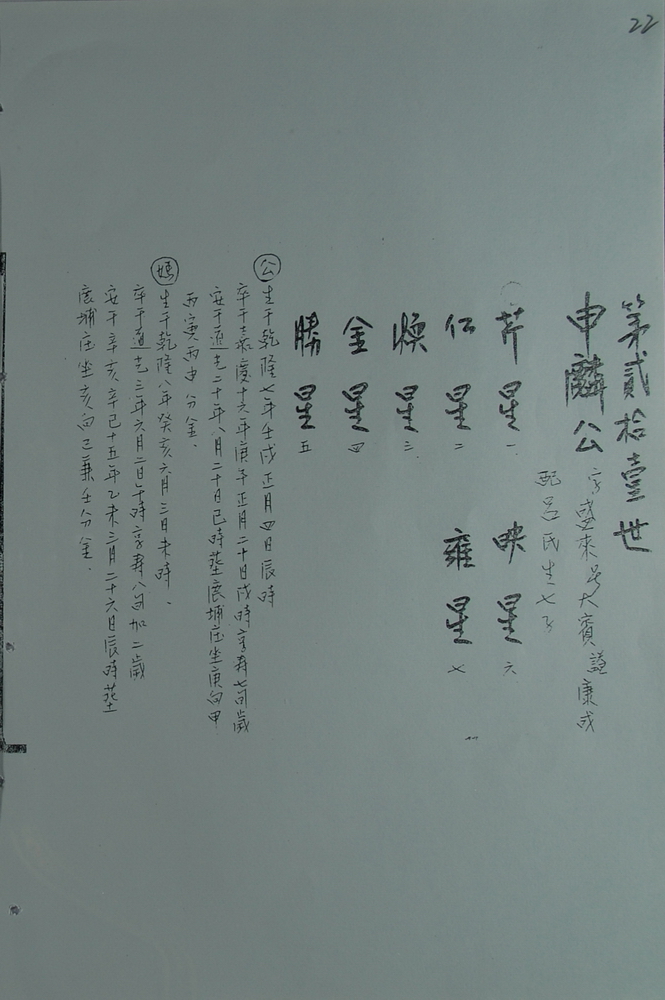 22
第貳拾壹世
申麟公 字盛來号大賓謚康成
配呂氏生七子
芹星一 映星六
仁星二 雍星七
煥星三
金星四
勝星五
公 生于乾隆七年壬戌正月四日辰時
卒于嘉慶十六年庚午正月二十日戌時享寿七旬歲
安于道光二十年八月二十日巳時塟 埔庄坐庚向甲
丙寅丙申分金、
媽 生于乾隆八年癸亥六月三日未時、
卒于道光三年六月二日午時享寿八旬加二歲
安于辛亥辛巳十五年乙未三月二十六日辰時塟
埔庄坐亥向巳兼壬分金、